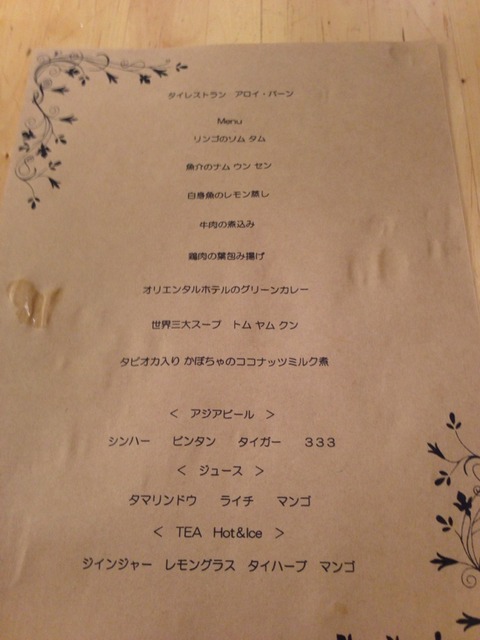 タイレストラン アロイ・バーン
Menu
リンゴのソム タム
魚介のナム ウン セン
白身魚のレモン蒸し
牛肉の煮込み
鶏肉の葉包み揚げ
オリエンタルホテルのグリーンカレー
世界三大スープ トム ヤム クン
タピオカ入り かぼちゃのココナッツミルク煮
< アジアビール >
シンハー ビンタン タイガー 333
< ジュース >
タマリンドウ ライチ マンゴ
< TEA Hot&Ice >
ジインジャー レモングラス タイハーブ マンゴ